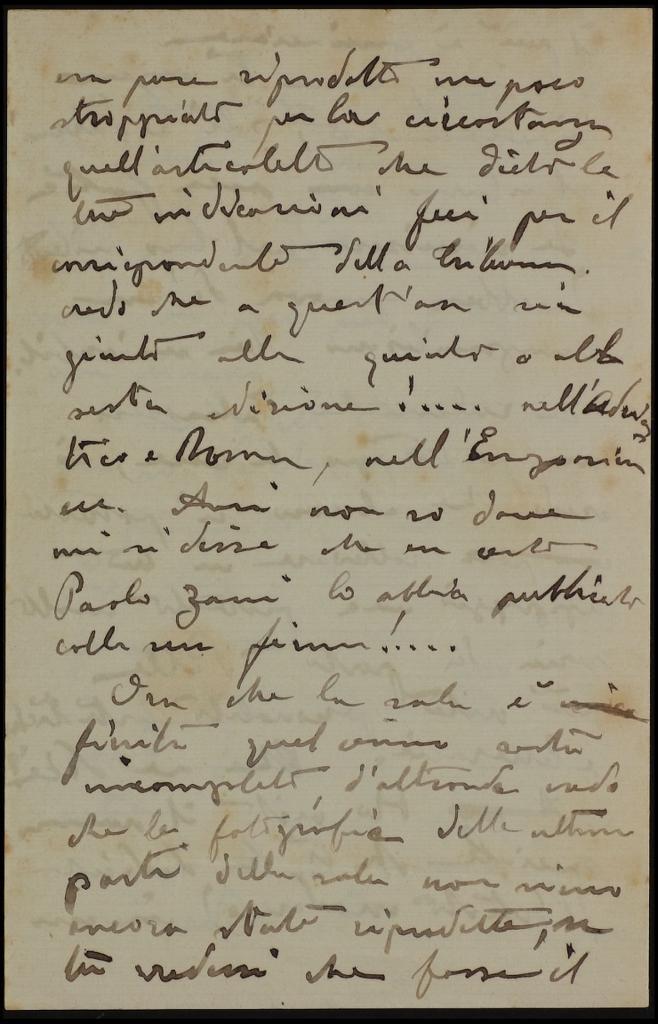 era pure riprodotto un poco
stroppiato per la circostanza
quell'articoletto che dietro le
tue indicazioni feci per il
corrispondente della Tribuna.
credo che a quest'ora sia
giunto alla quinta o alla
sesta edizione!.... nell'Adria
tico e Roma, nell'Emporium
ecc. Anzi non so dove
mi si disse che un certo
Paolo Zani lo abbia pubblicato
colla sua firma!....
Ora che la sala è
finita quel cenno resta
incompleto, d'altronde vedo
che le fotografie delle ultime
parti della sala non sieno
ancora state riprodotte, se
tu credessi che fosse il